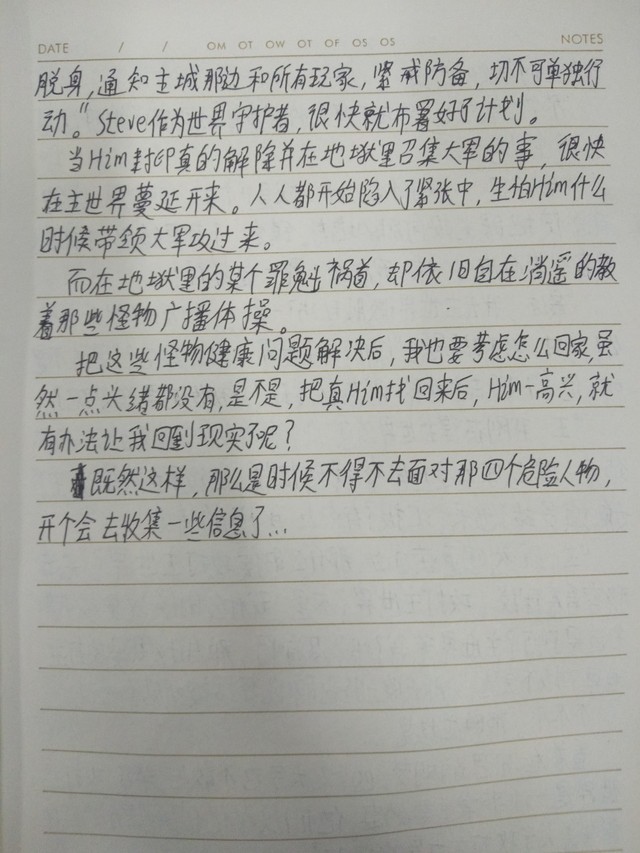 DATE / / OM OT OW OT OF OS OS NOTES
脱身，通知主城那边和所有玩家，紧戒防备，切不可单独行
动。"Steve作为世界守护者，很快就布署好了计划。
当Him封印真的解除并在地狱里召集大军的事，很快
在主世界蔓延开来。人人都开始陷入了紧张中，生怕Him什么
时候带领大军攻过来。
而在地狱里的某个罪魁祸首，却依旧自在消遥的教
着那些怪物广播体操。
把这些怪物健康问题解决后，我也要考虑怎么回家，虽
然一点头绪都没有，是不是，把真Him找回来后，Him一高兴，就
有办法让我回到现实了呢？
既然这样，那么是时候不得不去面对那四个危险人物，
开个会去收集一些信息了...